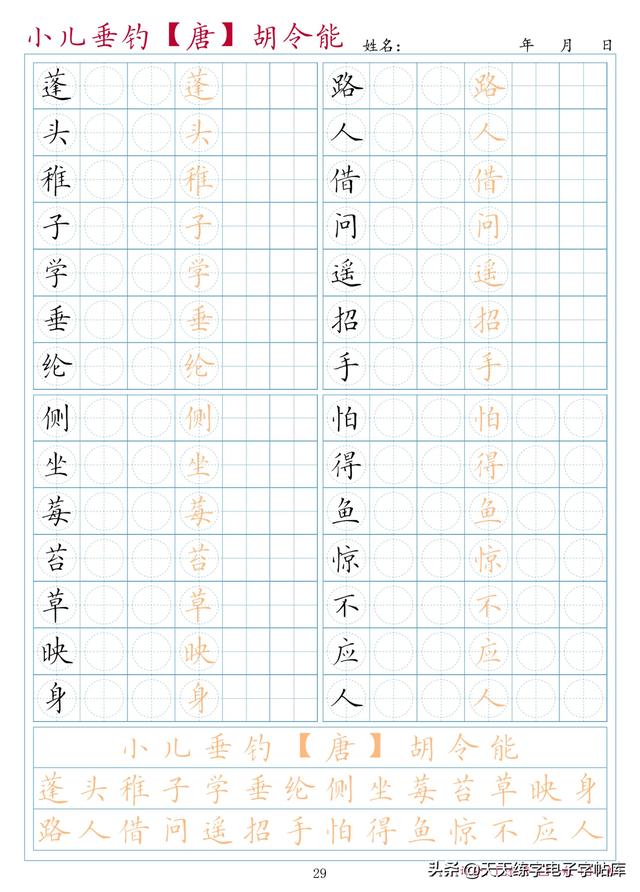 小儿垂钓【唐】胡令能 姓名: 年 月 日
蓬 蓬 路 路
头 头 人 人
稚 稚 借 借
子 子 问 问
学 学 遥 遥
垂 垂 招 招
纶 纶 手 手
侧 侧 怕 怕
坐 坐 得 得
莓 莓 鱼 鱼
苔 苔 惊 惊
草 草 不 不
映 映 应 应
身 身 人 人
小儿垂钓【唐】胡令能
蓬头稚子学垂纶侧坐莓苔草映身
路人借问遥招手怕得鱼惊不应人
29
头条@天天练字电子字帖库